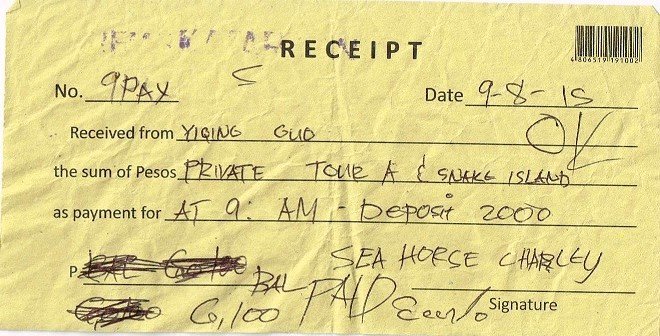 RECEIPT
4806519191002
No. 9PAX
Date 9-8-15
Received from YIQING GUO
OK
the sum of Pesos PRIVATE TOUR A & SNAKE ISLAND
as payment for AT 9: AM - Deposit 2000
P BAL SEA HORSE CHARLEY
6,100 PAID
Signature